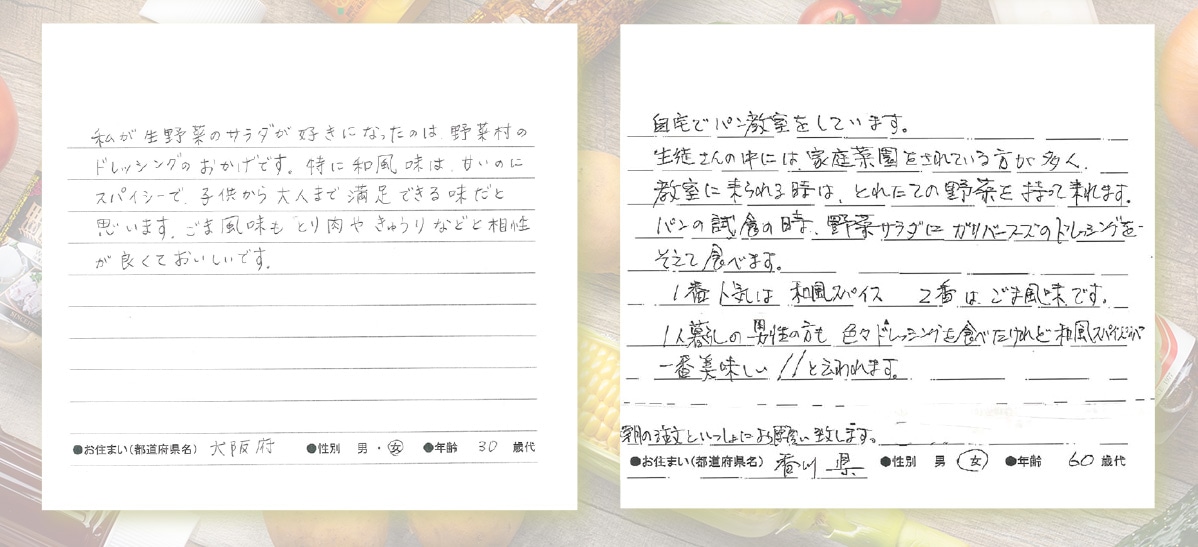 私が生野菜のサラダが好きになったのは、野菜村の
ドレッシングのおかげです。特に和風味は、甘いのに
スパイシーで、子供から大人まで満足できる味だと
思います。ごま風味もとり肉やきゅうりなどと相性
が良くておいしいです。
●お住まい(都道府県名) 大阪府 ●性別 男・女 ●年齢 30 歳代
自宅でパン教室をしています。
生徒さんの中には、家庭菜園をされている方が多く、
教室に来られる時は、とれたての野菜を持って来れます。
パンの試食の時、野菜サラダにガリバーズのドレッシングを
そえて食べます。
1番人気は 和風スパイス 2番は、ごま風味です。
1人暮しの男性の方も 色々ドレッシングを食べたけれど和風スパイスが
一番美味しい!!と言われます。
の注文といっしょにお願い致します。
●お住まい(都道府県名) 香川県 ●性別 男 女 ●年齢 60 歳代